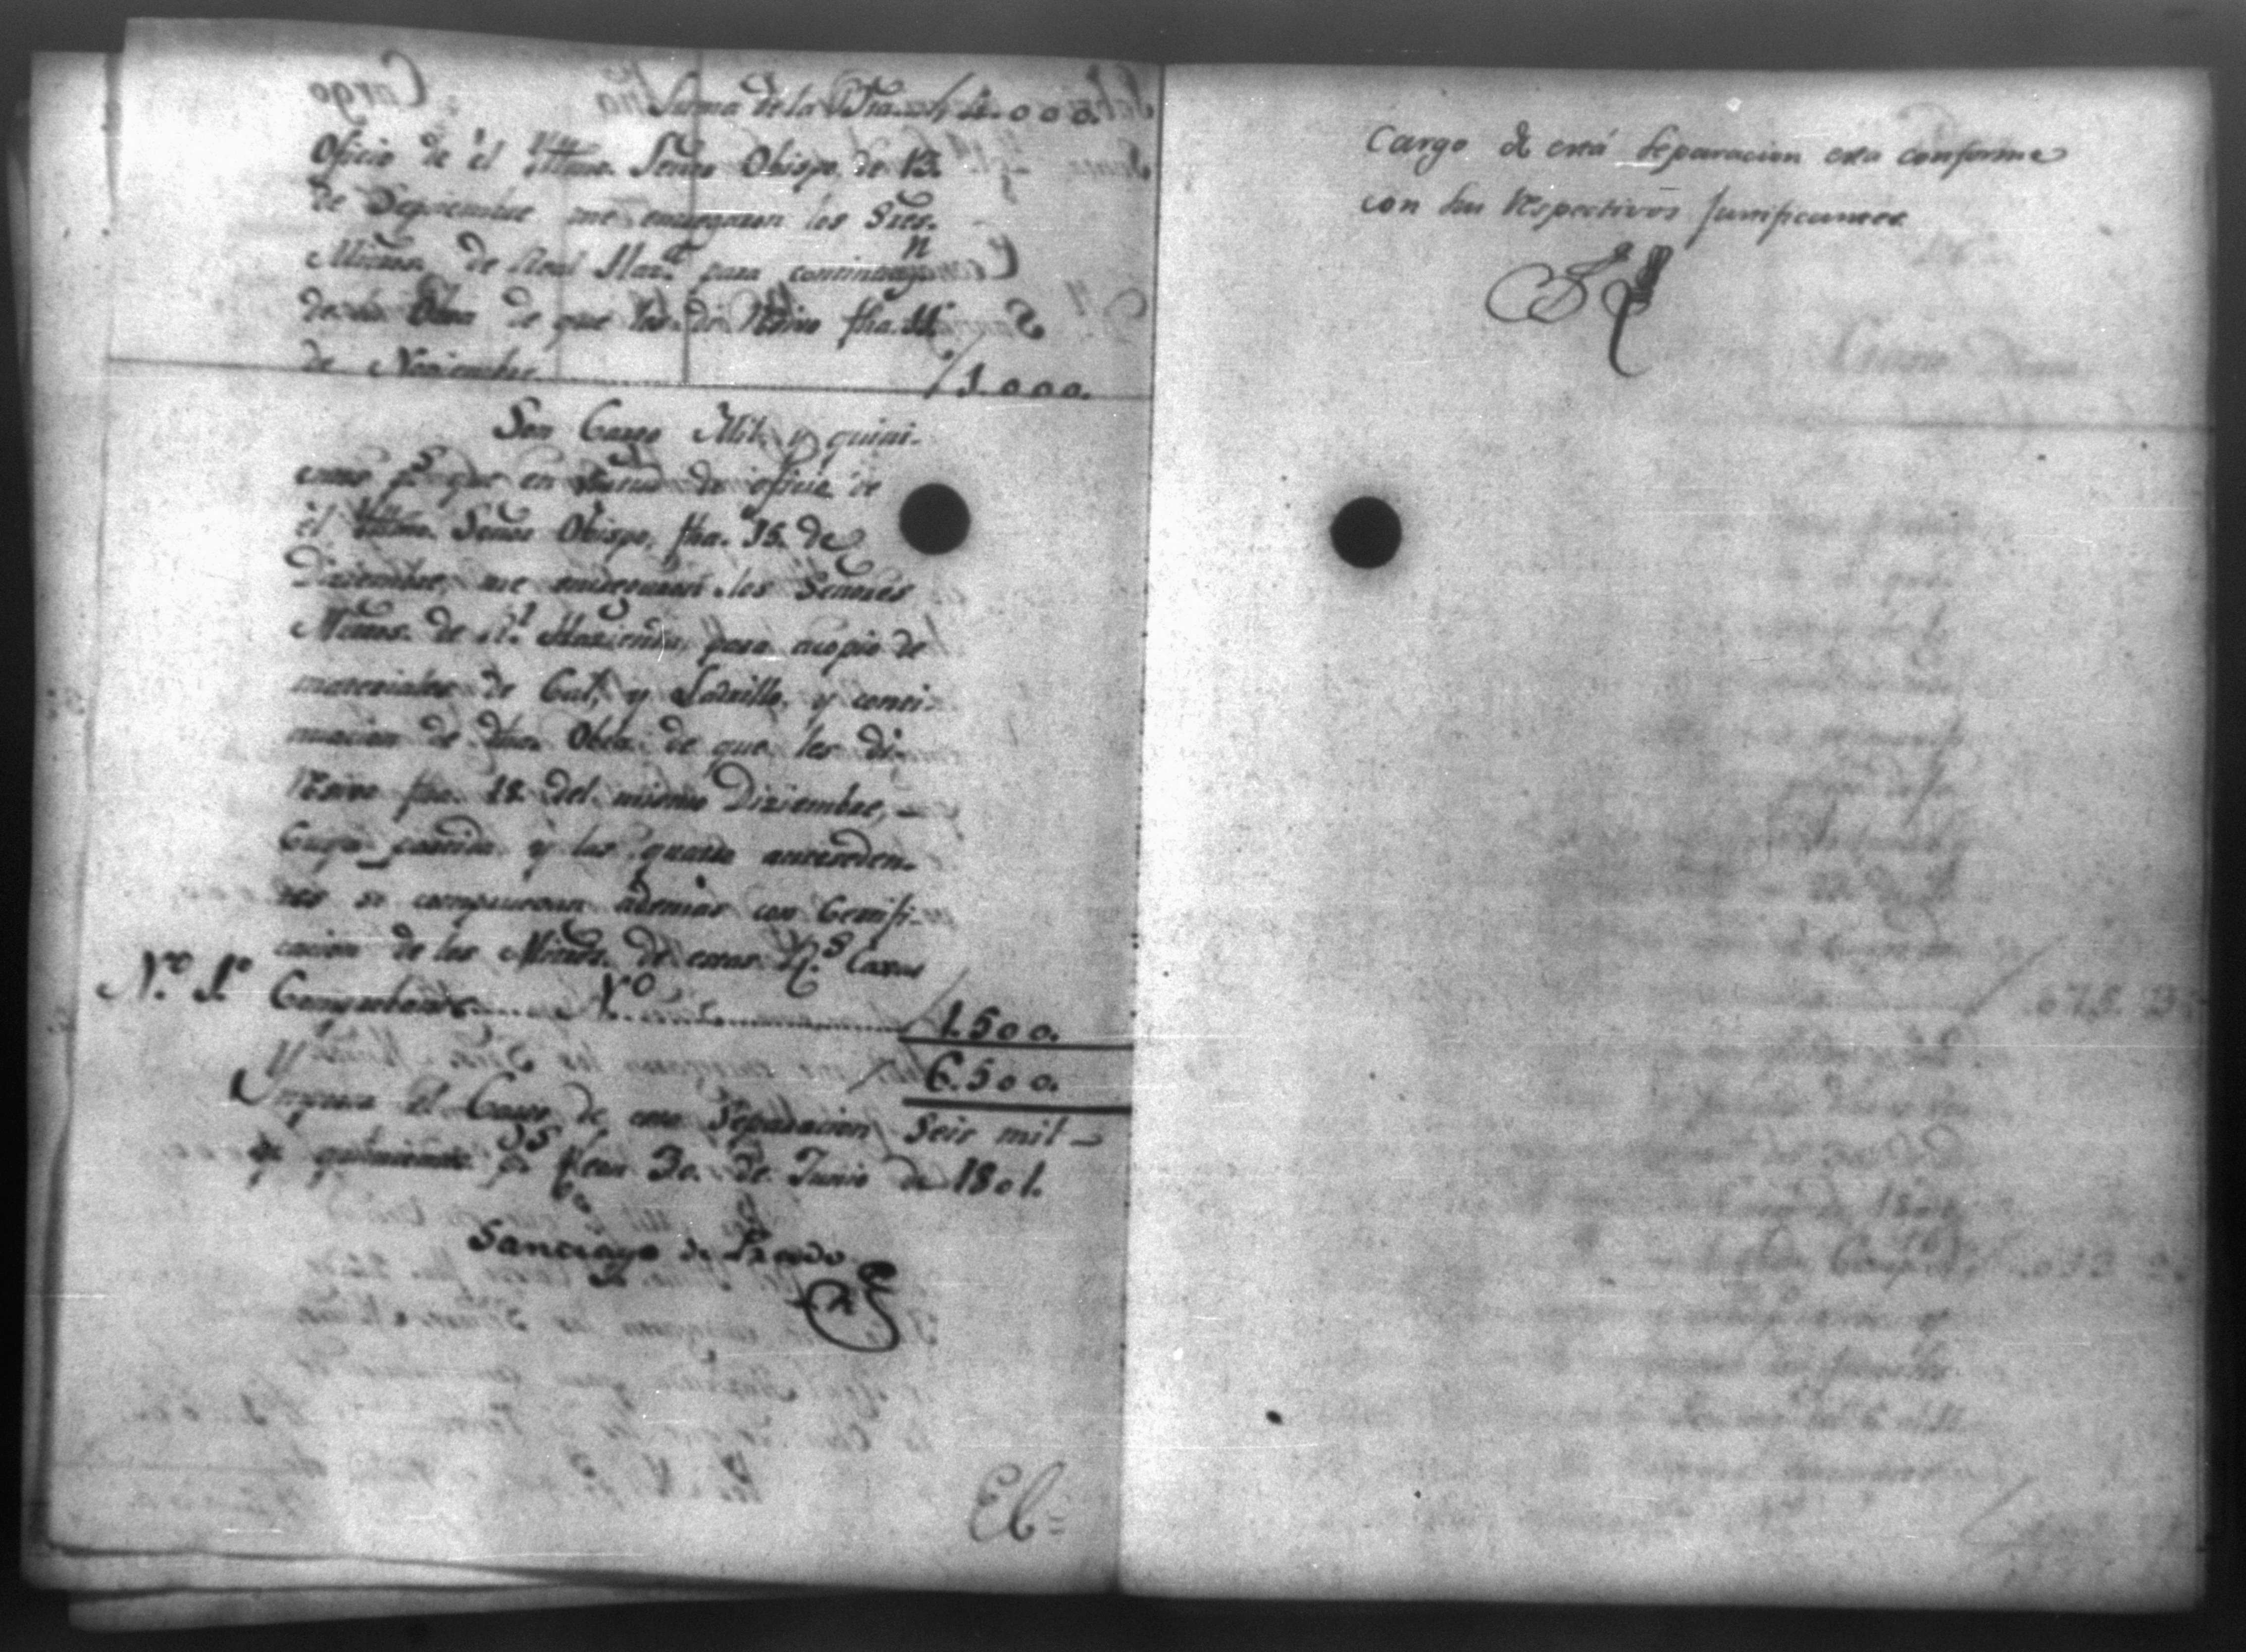 Suma de la Bta.... 4.000.
Oficio de él Yltmo. Señor Obispo, de 13.
de Septiembre me entregaron los Sres.
Mtros. de Real Haz.da para continuazn
de la Obra de que les di Resivo fha. 11
de Noviembre / 1.000.
Son Cargo Mil y quini-
entos ps. que en virtud de oficio de
él Yltmo. Señor Obispo, fha. 15. de
Diziembre, me entregaron los Señores
Mtros. de Rl. Hazienda, para acopio de
materiales de Cal, y Ladrillo, y conti-
nuacion de dha. Obra de que les di
Resivo fha. 18. del mismo Diziembre,
Cuya partida y las quatro anteseden-
tes se comprueban ademas con Certifi-
cacion de los Mtros. de estas Rs. Caxas
N.º 1.º Comprobante.... N.º ........ / 1.500.
/ 6.500.
Ymporta el Cargo de esta Separacion Seis mil
y quinientos ps. Leon 30. de Junio de 1801.
Santiago de Prado
El=
Cargo de está Separacion esta conforme
con sus Respectivos Justificantes